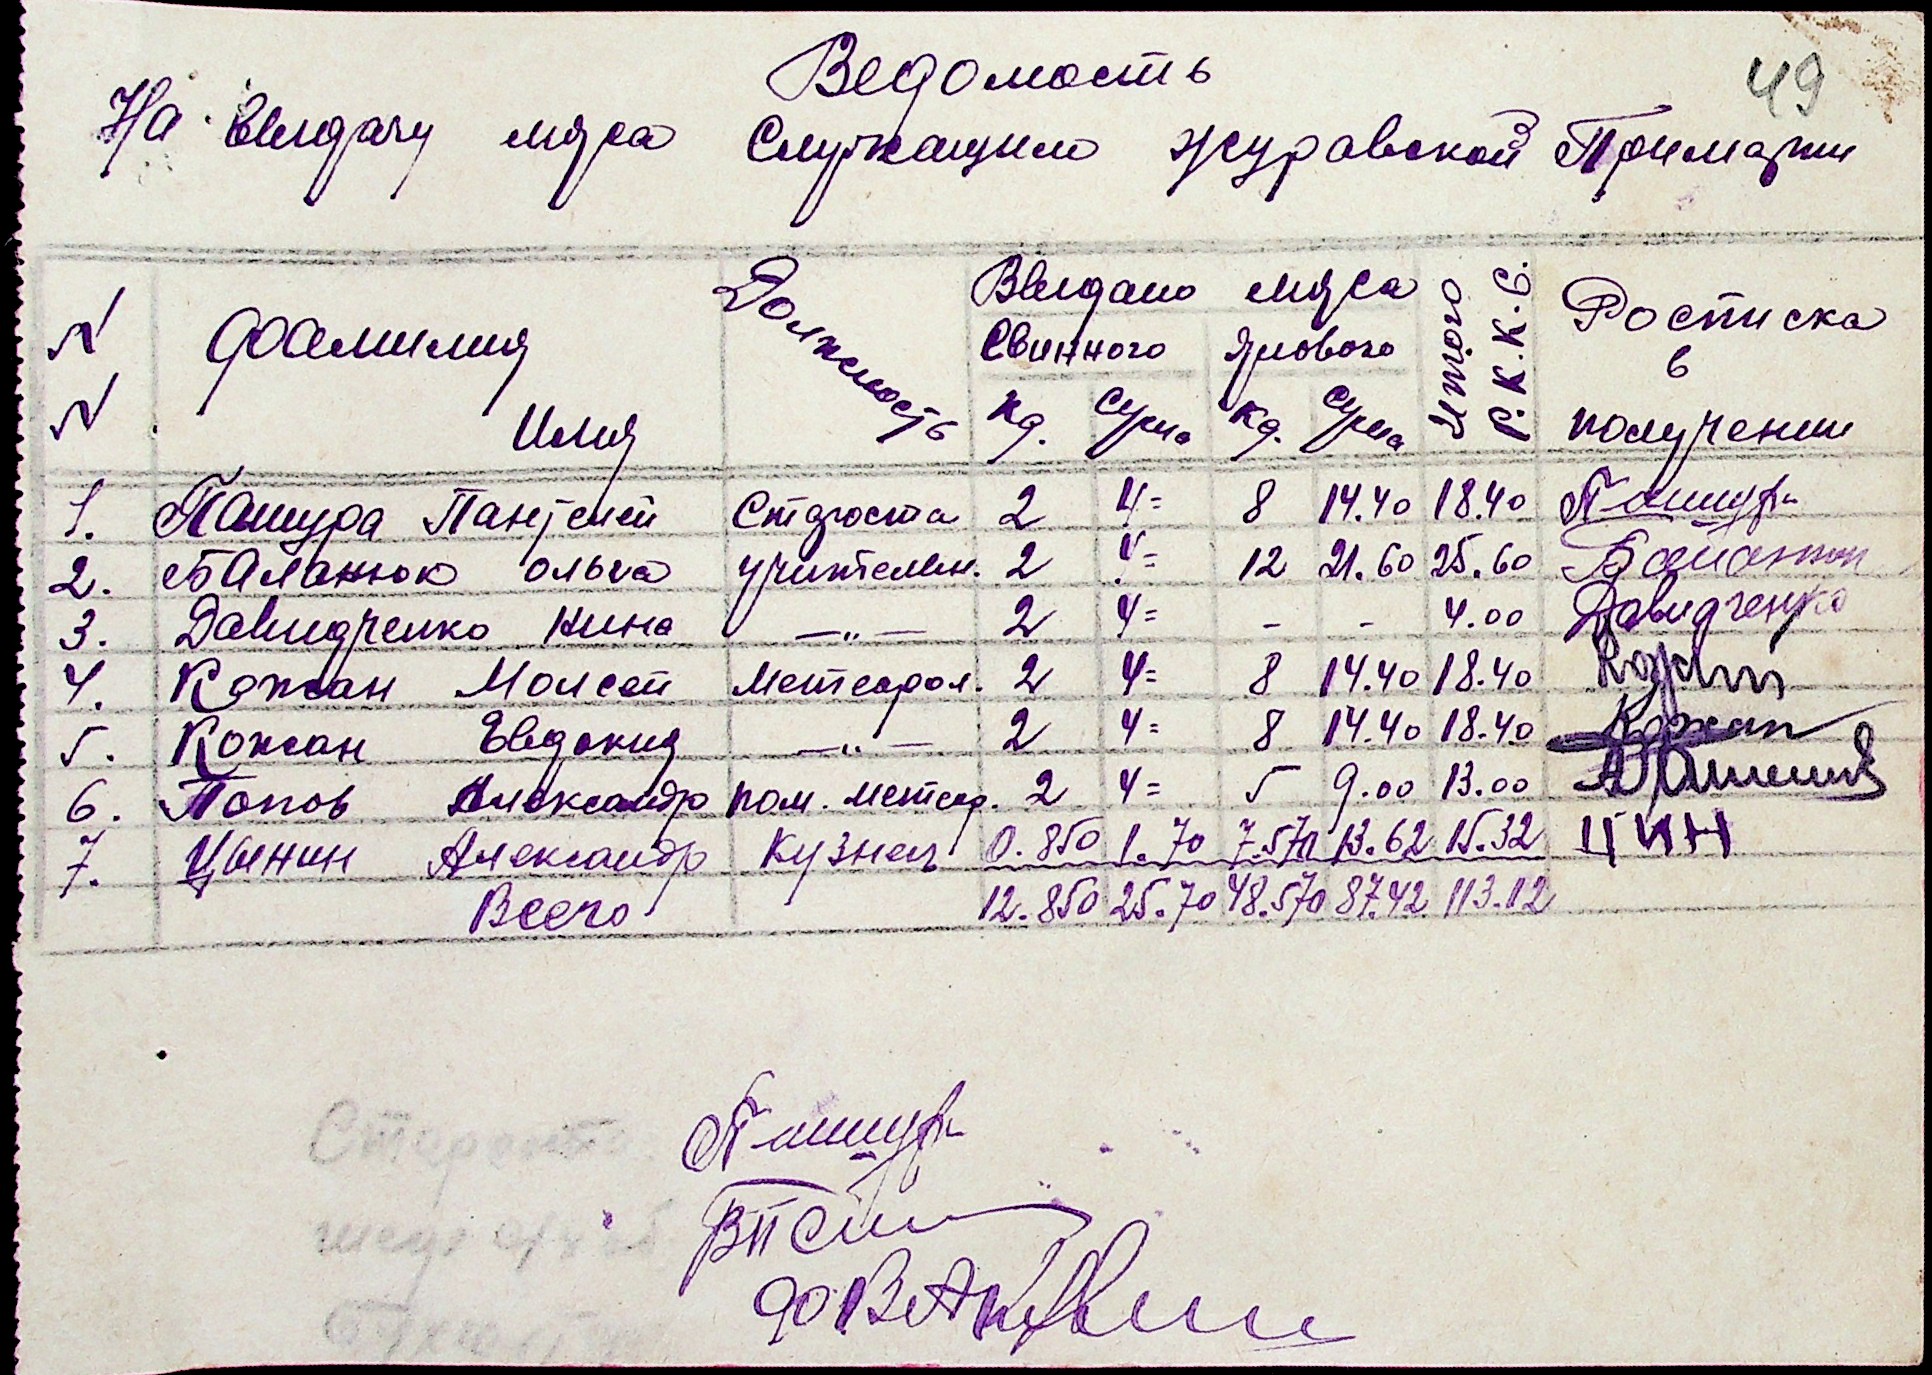 49
Ведомость
На выдачу мяса Служащим журавской Примарии
N N Фамилия Имя Должность Выдано мяса Итого Р.К.К.С. Росписка в получении
Свинного Ялового
Кг. Сума Кг. Сума
1. Пашура Пантелей Староста 2 4= 8 14.40 18.40 Пашура
2. Баланюк Ольга учительн. 2 4= 12 21.60 25.60 Баланюк
3. Давидченко Нина —„— 2 4= - - 4.00 Давидченко
4. Кожан Моисей Метеорол. 2 4= 8 14.40 18.40
5. Кожан Евдокия —„— 2 4= 8 14.40 18.40 Кожан
6. Попов Александр пом. метеор. 2 4= 5 9.00 13.00
7. Цынин Александр Кузнец 0.850 1.70 7.570 13.62 15.32 ЦИН
Всего 12.850 25.70 48.570 87.42 113.12
Староста
Пашура